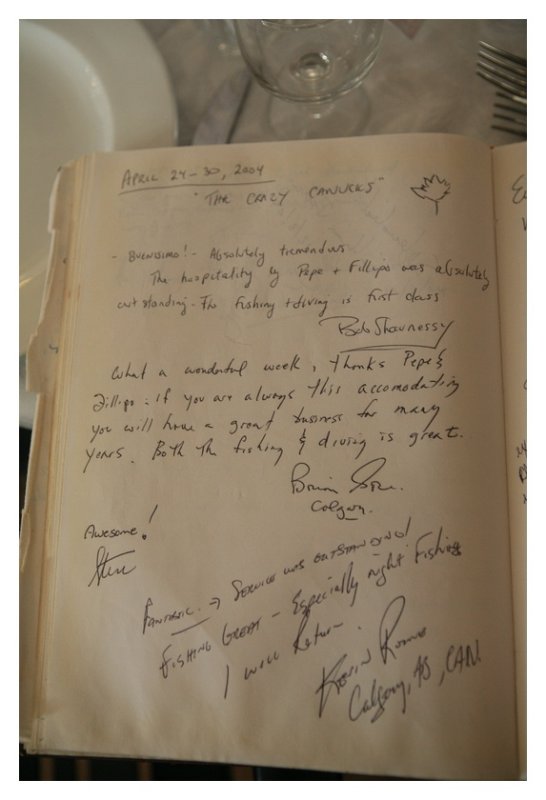 APRIL 24-30, 2004
"THE CRAZY CANUCKS"
- BUENISIMO! - Absolutely tremendous
The hospitality by Pepe + Fillipo was absolutely
outstanding - The fishing + diving is first class
Bob Shaunessy
What a wonderful week, thanks Pepe &
Fillipo. if you are always this accomodating
you will have a great business for many
years. Both the fishing & diving is great.
Brian
Calgary.
Awesome!
Steve
FANTASTIC → SERVICE WAS OUTSTANDING!
FISHING GREAT - Especially night Fishing
I WILL Return.
Kevin
Calgary, AB, CAN.